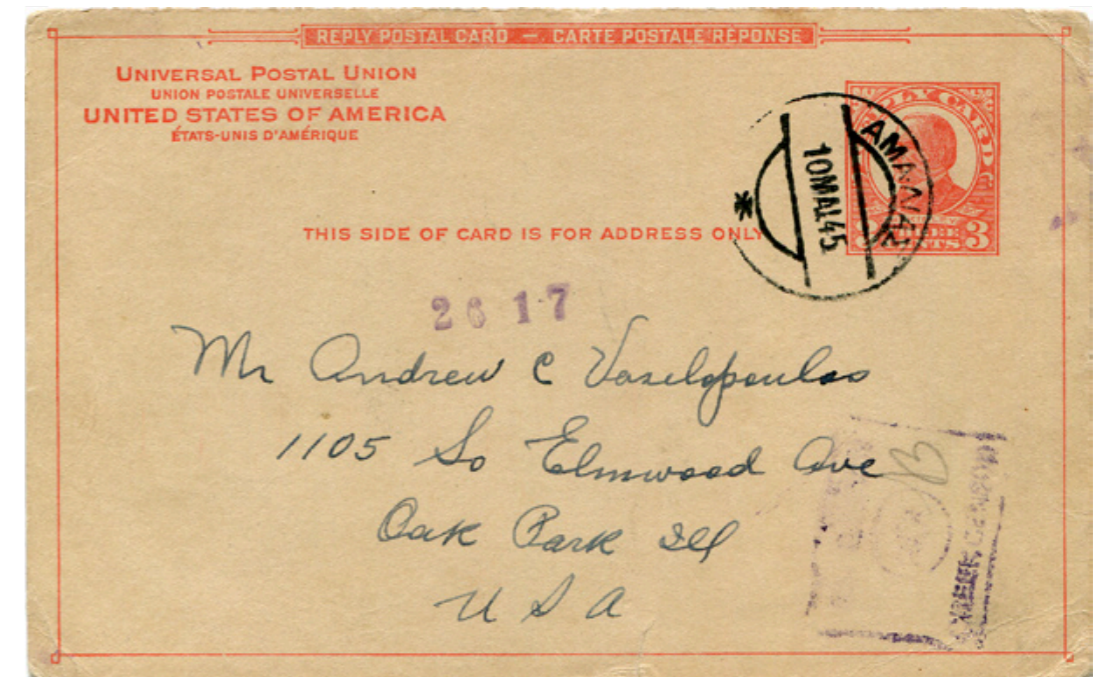 REPLY POSTAL CARD — CARTE POSTALE RÉPONSE
UNIVERSAL POSTAL UNION
UNION POSTALE UNIVERSELLE
UNITED STATES OF AMERICA
ÉTATS-UNIS D'AMÉRIQUE
THIS SIDE OF CARD IS FOR ADDRESS ONLY
10MAI45
3
26 17
Mr Andrew C Vasilopoulos
1105 So Elmwood Ave
Oak Park Ill
U S A
B